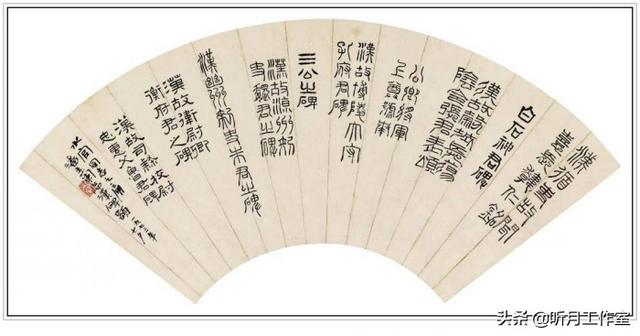 白石神君碑
漢故穀城長蕩
陰令張君表頌
公卿將軍
上尊號奏
漢故博陵太守
孔府君碑
三公之碑
漢故涼州刺
史魏君之碑
漢幽州刺史朱君之碑
漢故衛尉卿
衡府君之碑
漢故司隸校尉
忠惠父魯君碑
头条 @听月工作室